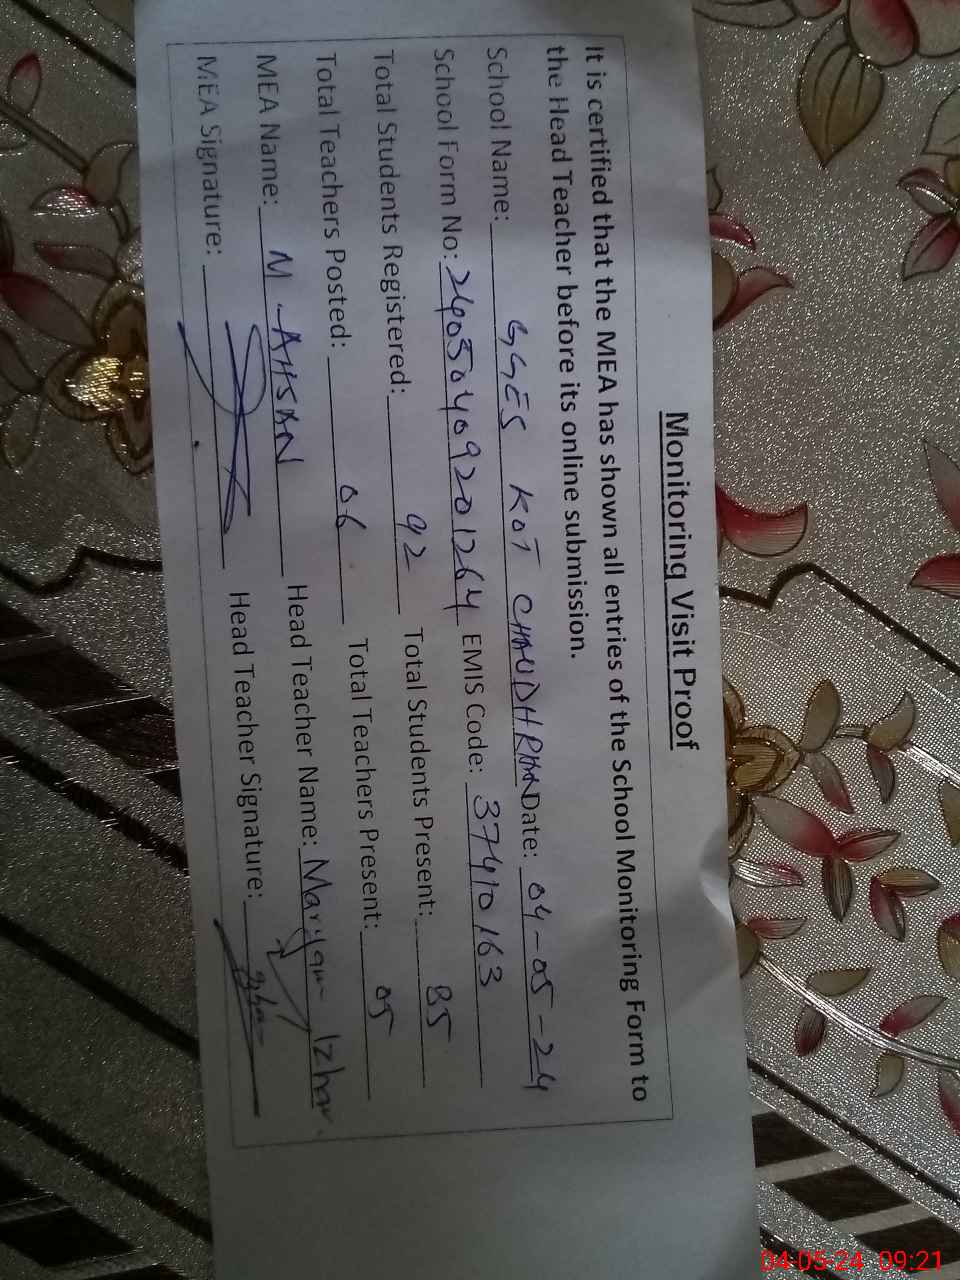 Monitoring Visit Proof
It is certified that the MEA has shown all entries of the School Monitoring Form to
the Head Teacher before its online submission.
School Name: GGES KOT CHAUDHRIAN Date: 04-05-24
School Form No: 24050409201264 EMIS Code: 37410163
Total Students Registered: 92 Total Students Present: 85
Total Teachers Posted: 06 Total Teachers Present: 05
MEA Name: M. AHSAN Head Teacher Name: Maryam Izhar
MEA Signature: Head Teacher Signature:
04-05-24 09:21